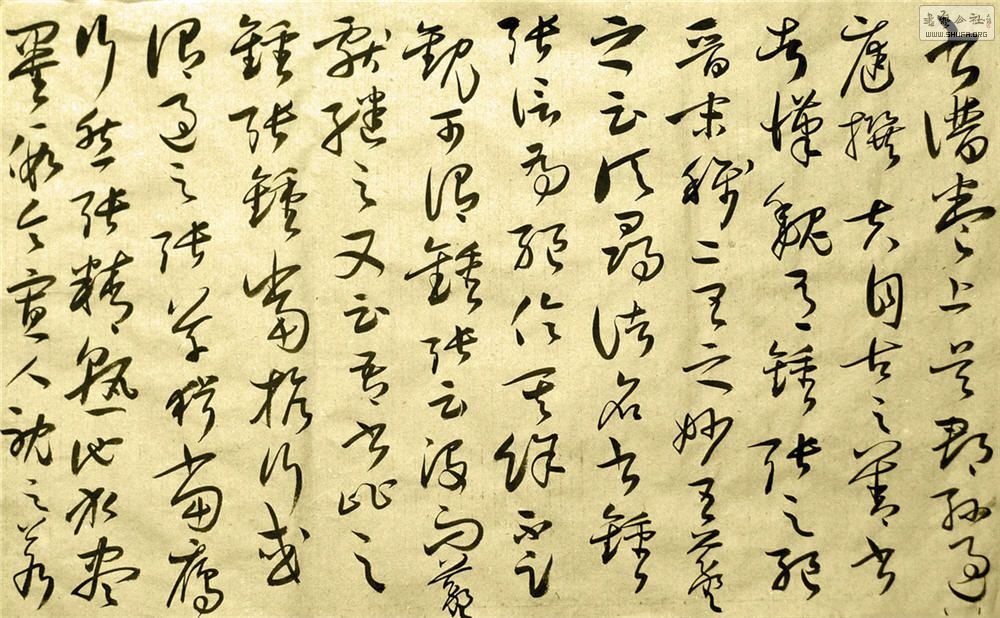 書譜卷上吳郡孫過
庭撰夫自古之善書
者漢魏有鍾張之絕
晉末稱二王之妙王羲
之云頃尋諸名書鍾
張信為絕倫其餘不足
觀可謂鍾張云沒而羲
獻繼之又云吾書比之
鍾張鍾當抗行或
謂過之張草猶當雁
行然張精熟池水盡
墨假令寡人耽之若
書法公社
WWW.SHUFA.ORG